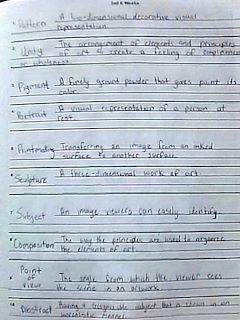 Pattern A two-dimensional decorative visual
representation.
Unity The arrangement of elements and principles
of art to create a feeling of completeness
or wholeness.
Pigment A finely ground powder that gives paint its
color.
Portrait A visual representation of a person at
rest.
Printmaking Transferring an image from an inked
surface to another surface.
Sculpture A three-dimensional work of art
Subject An image viewers can easily identify.
Composition The way the principles are used to organize
the elements of art.
Point
of
View The angle from which the viewer sees
the scene in an artwork.
Abstract Having a recognizable subject that is shown in an
unrealistic manner.